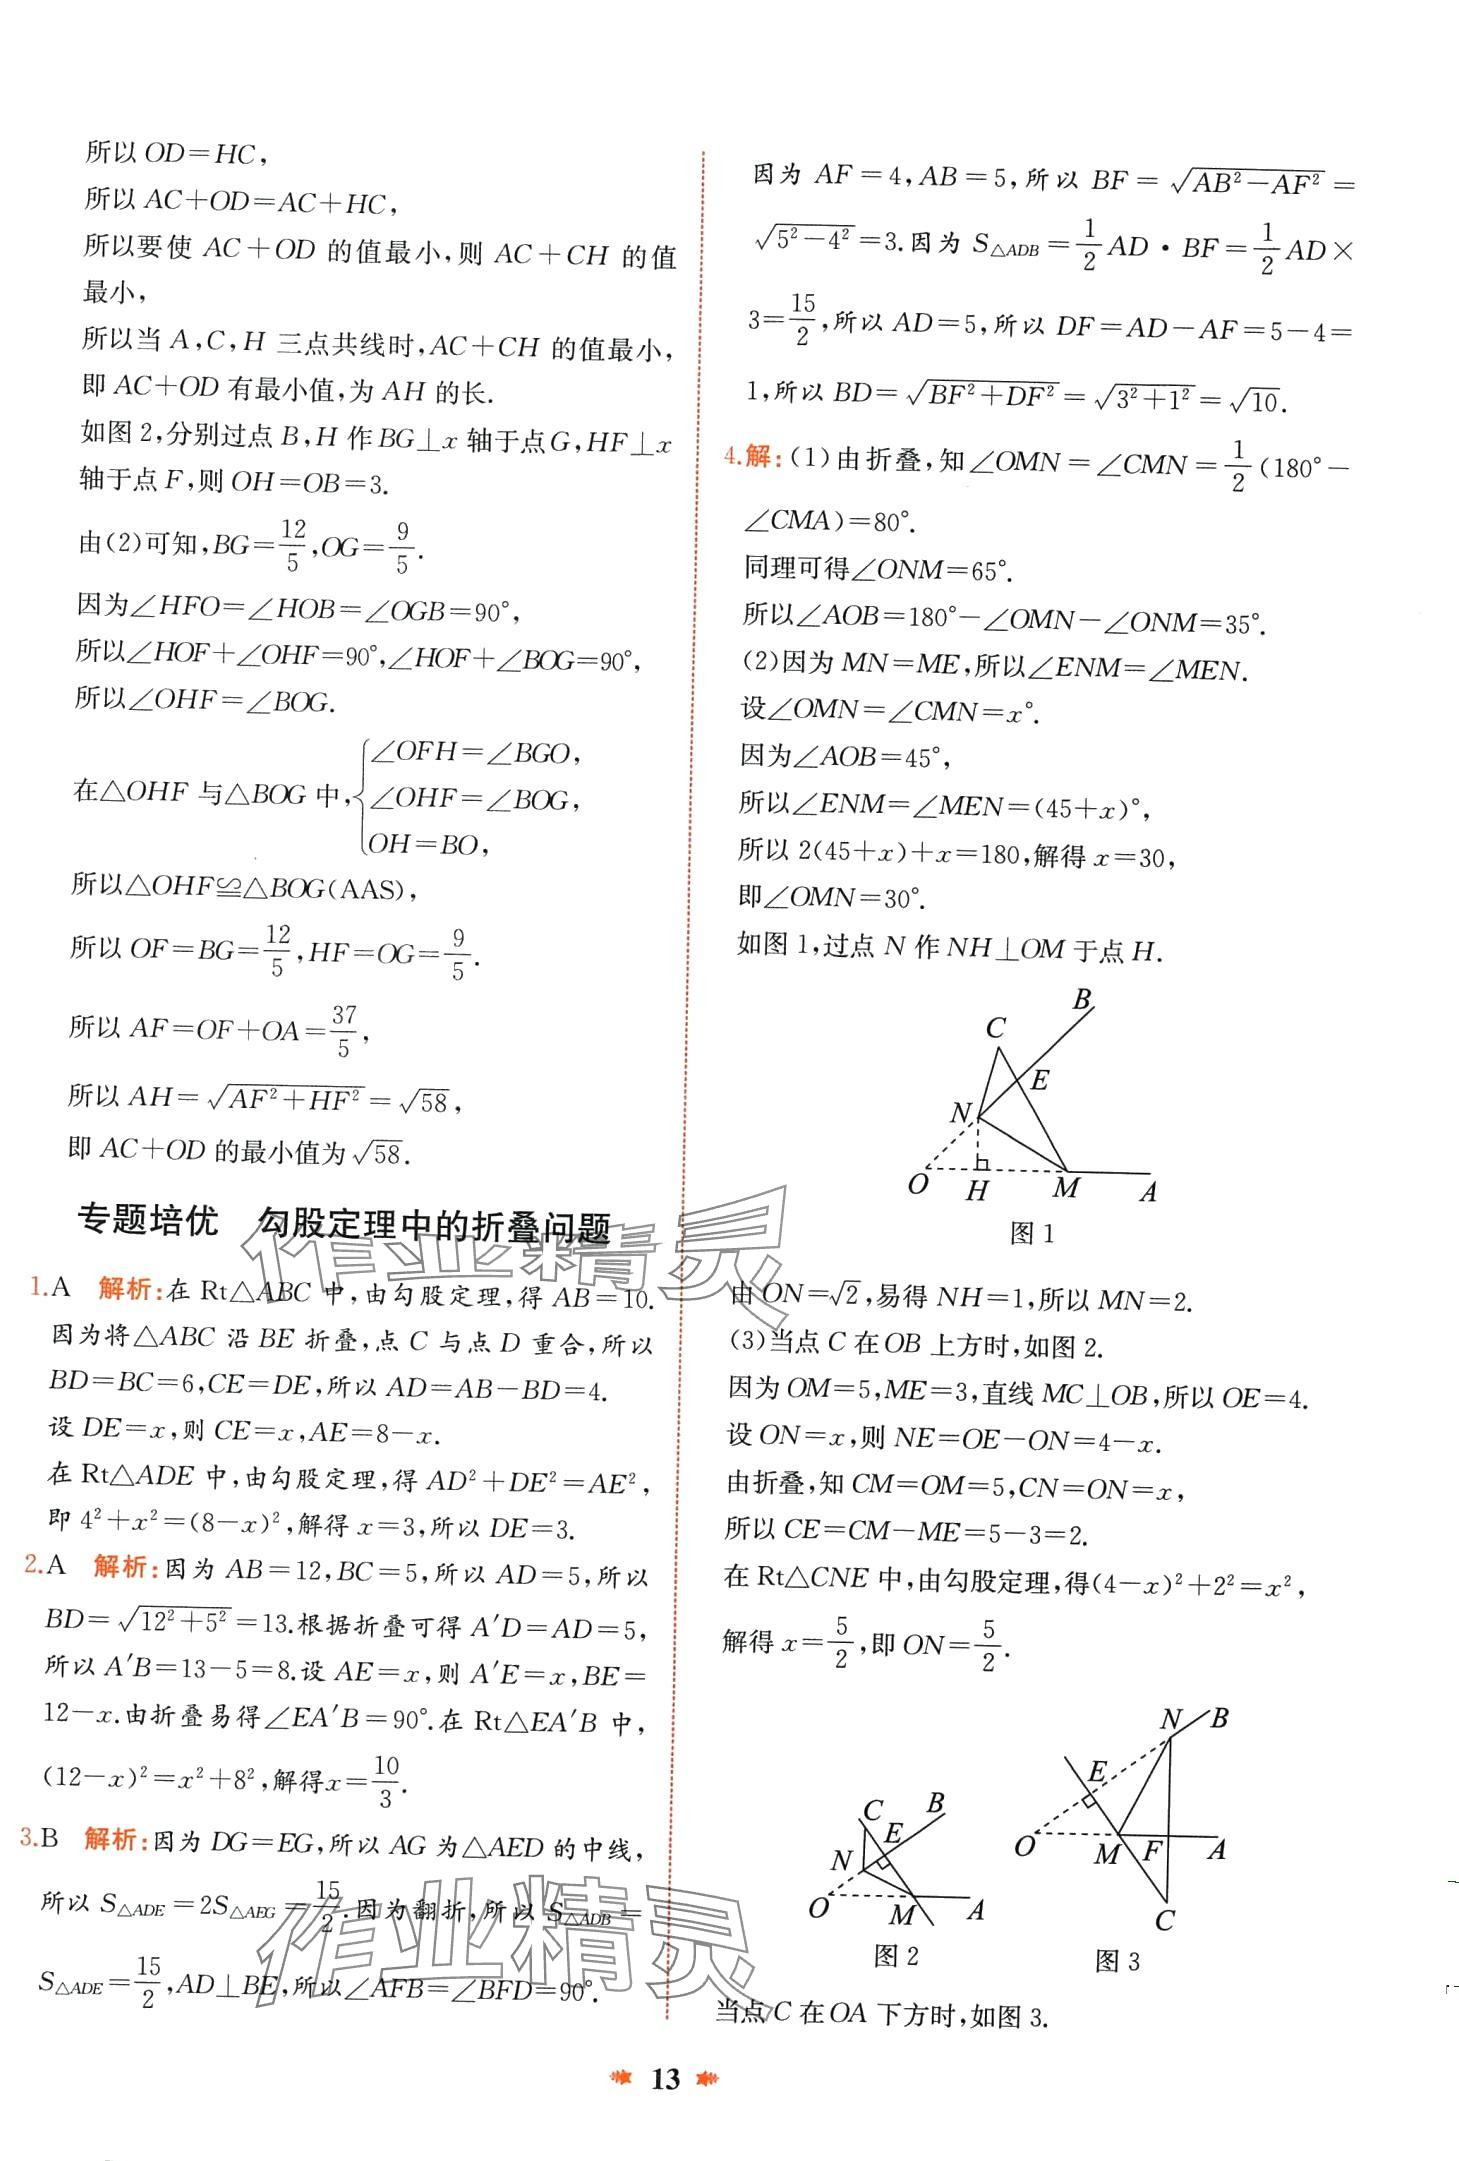 所以 OD=HC,
所以 AC+OD=AC+HC,
所以要使 AC+OD 的值最小,则 AC+CH 的值
最小,
所以当 A,C,H 三点共线时,AC+CH 的值最小,
即 AC+OD 有最小值,为 AH 的长.
如图 2,分别过点 B,H 作 BG⊥x 轴于点 G,HF⊥x
轴于点 F,则 OH=OB=3.
由(2)可知,BG=12/5,OG=9/5.
因为∠HFO=∠HOB=∠OGB=90°,
所以∠HOF+∠OHF=90°,∠HOF+∠BOG=90°,
所以∠OHF=∠BOG.
在△OHF 与△BOG 中,{∠OFH=∠BGO,
∠OHF=∠BOG,
OH=BO,
所以△OHF≌△BOG(AAS),
所以 OF=BG=12/5,HF=OG=9/5.
所以 AF=OF+OA=37/5,
所以 AH=√(AF²+HF²)=√58,
即 AC+OD 的最小值为√58.
专题培优 勾股定理中的折叠问题
1.A 解析:在 Rt△ABC 中,由勾股定理,得 AB=10.
因为将△ABC 沿 BE 折叠,点 C 与点 D 重合,所以
BD=BC=6,CE=DE,所以 AD=AB-BD=4.
设 DE=x,则 CE=x,AE=8-x.
在 Rt△ADE 中,由勾股定理,得 AD²+DE²=AE²,
即 4²+x²=(8-x)²,解得 x=3,所以 DE=3.
2.A 解析:因为 AB=12,BC=5,所以 AD=5,所以
BD=√(12²+5²)=13.根据折叠可得 A′D=AD=5,
所以 A′B=13-5=8.设 AE=x,则 A′E=x,BE=
12-x.由折叠易得∠EA′B=90°.在 Rt△EA′B 中,
(12-x)²=x²+8²,解得x=10/3.
3.B 解析:因为 DG=EG,所以 AG 为△AED 的中线,
所以 S△ADE=2S△AEG=15/2.因为翻折,所以 S△ADB=
S△ADE=15/2,AD⊥BE,所以∠AFB=∠BFD=90°.
因为 AF=4,AB=5,所以 BF=√(AB²-AF²)=
√(5²-4²)=3.因为 S△ADB=1/2AD·BF=1/2AD×
3=15/2,所以 AD=5,所以 DF=AD-AF=5-4=
1,所以 BD=√(BF²+DF²)=√(3²+1²)=√10.
4.解:(1)由折叠,知∠OMN=∠CMN=1/2(180°-
∠CMA)=80°.
同理可得∠ONM=65°.
所以∠AOB=180°-∠OMN-∠ONM=35°.
(2)因为 MN=ME,所以∠ENM=∠MEN.
设∠OMN=∠CMN=x°.
因为∠AOB=45°,
所以∠ENM=∠MEN=(45+x)°,
所以 2(45+x)+x=180,解得 x=30,
即∠OMN=30°.
如图 1,过点 N 作 NH⊥OM 于点 H.
B
C
E
N
O H M A
图 1
由 ON=√2,易得 NH=1,所以 MN=2.
(3)当点 C 在 OB 上方时,如图 2.
因为 OM=5,ME=3,直线 MC⊥OB,所以 OE=4.
设 ON=x,则 NE=OE-ON=4-x.
由折叠,知 CM=OM=5,CN=ON=x,
所以 CE=CM-ME=5-3=2.
在 Rt△CNE 中,由勾股定理,得(4-x)²+2²=x²,
解得 x=5/2,即 ON=5/2.
C B
E
N
O M A
图 2
N B
E
O M F A
C
图 3
当点 C 在 OA 下方时,如图 3.
13
作业精灵
作业精灵